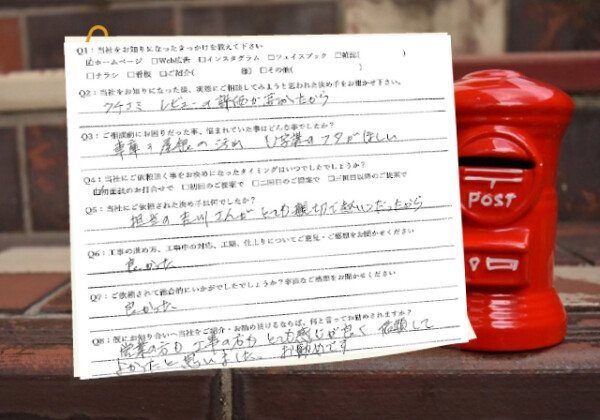 Q1：当社をお知りになったきっかけを教えて下さい
☑ホームページ □Web広告 □インスタグラム □フェイスブック □雑誌( )
□チラシ □看板 □ご紹介( 様) □その他( )
Q2：当社をお知りになった後、実際にご相談してみようと思われた決め手をお聞かせ下さい。
クチコミ レビューの評価が高かったから
Q3：ご相談前にお困りだった事、悩まれていた事はどんな事でしたか？
車庫の屋根の汚れ U字溝のフタがほしい
Q4：当社にご依頼頂く事をお決めになったタイミングはいつでしたでしょうか？
□初回のご提案で □二回目のご提案で □三回目以降のご提案で
Q5：当社にご依頼された決め手は何でしたか？
担当の吉川さんがとても親切で
だったから
Q6：工事の進め方、工事中の対応、工期、仕上りについてご意見・ご感想をお聞かせください
良かった
Q7：ご依頼されて総合的にいかがでしたでしょうか？率直なご感想をお聞かせください
良かった
Q8：仮にお知り合いへ当社をご紹介・お勧め頂けるならば、何と言ってお勧めされますか？
営業の方も 工事の方も とても感じが良く 依頼して
よかったと思いました。 お勧めです
POST